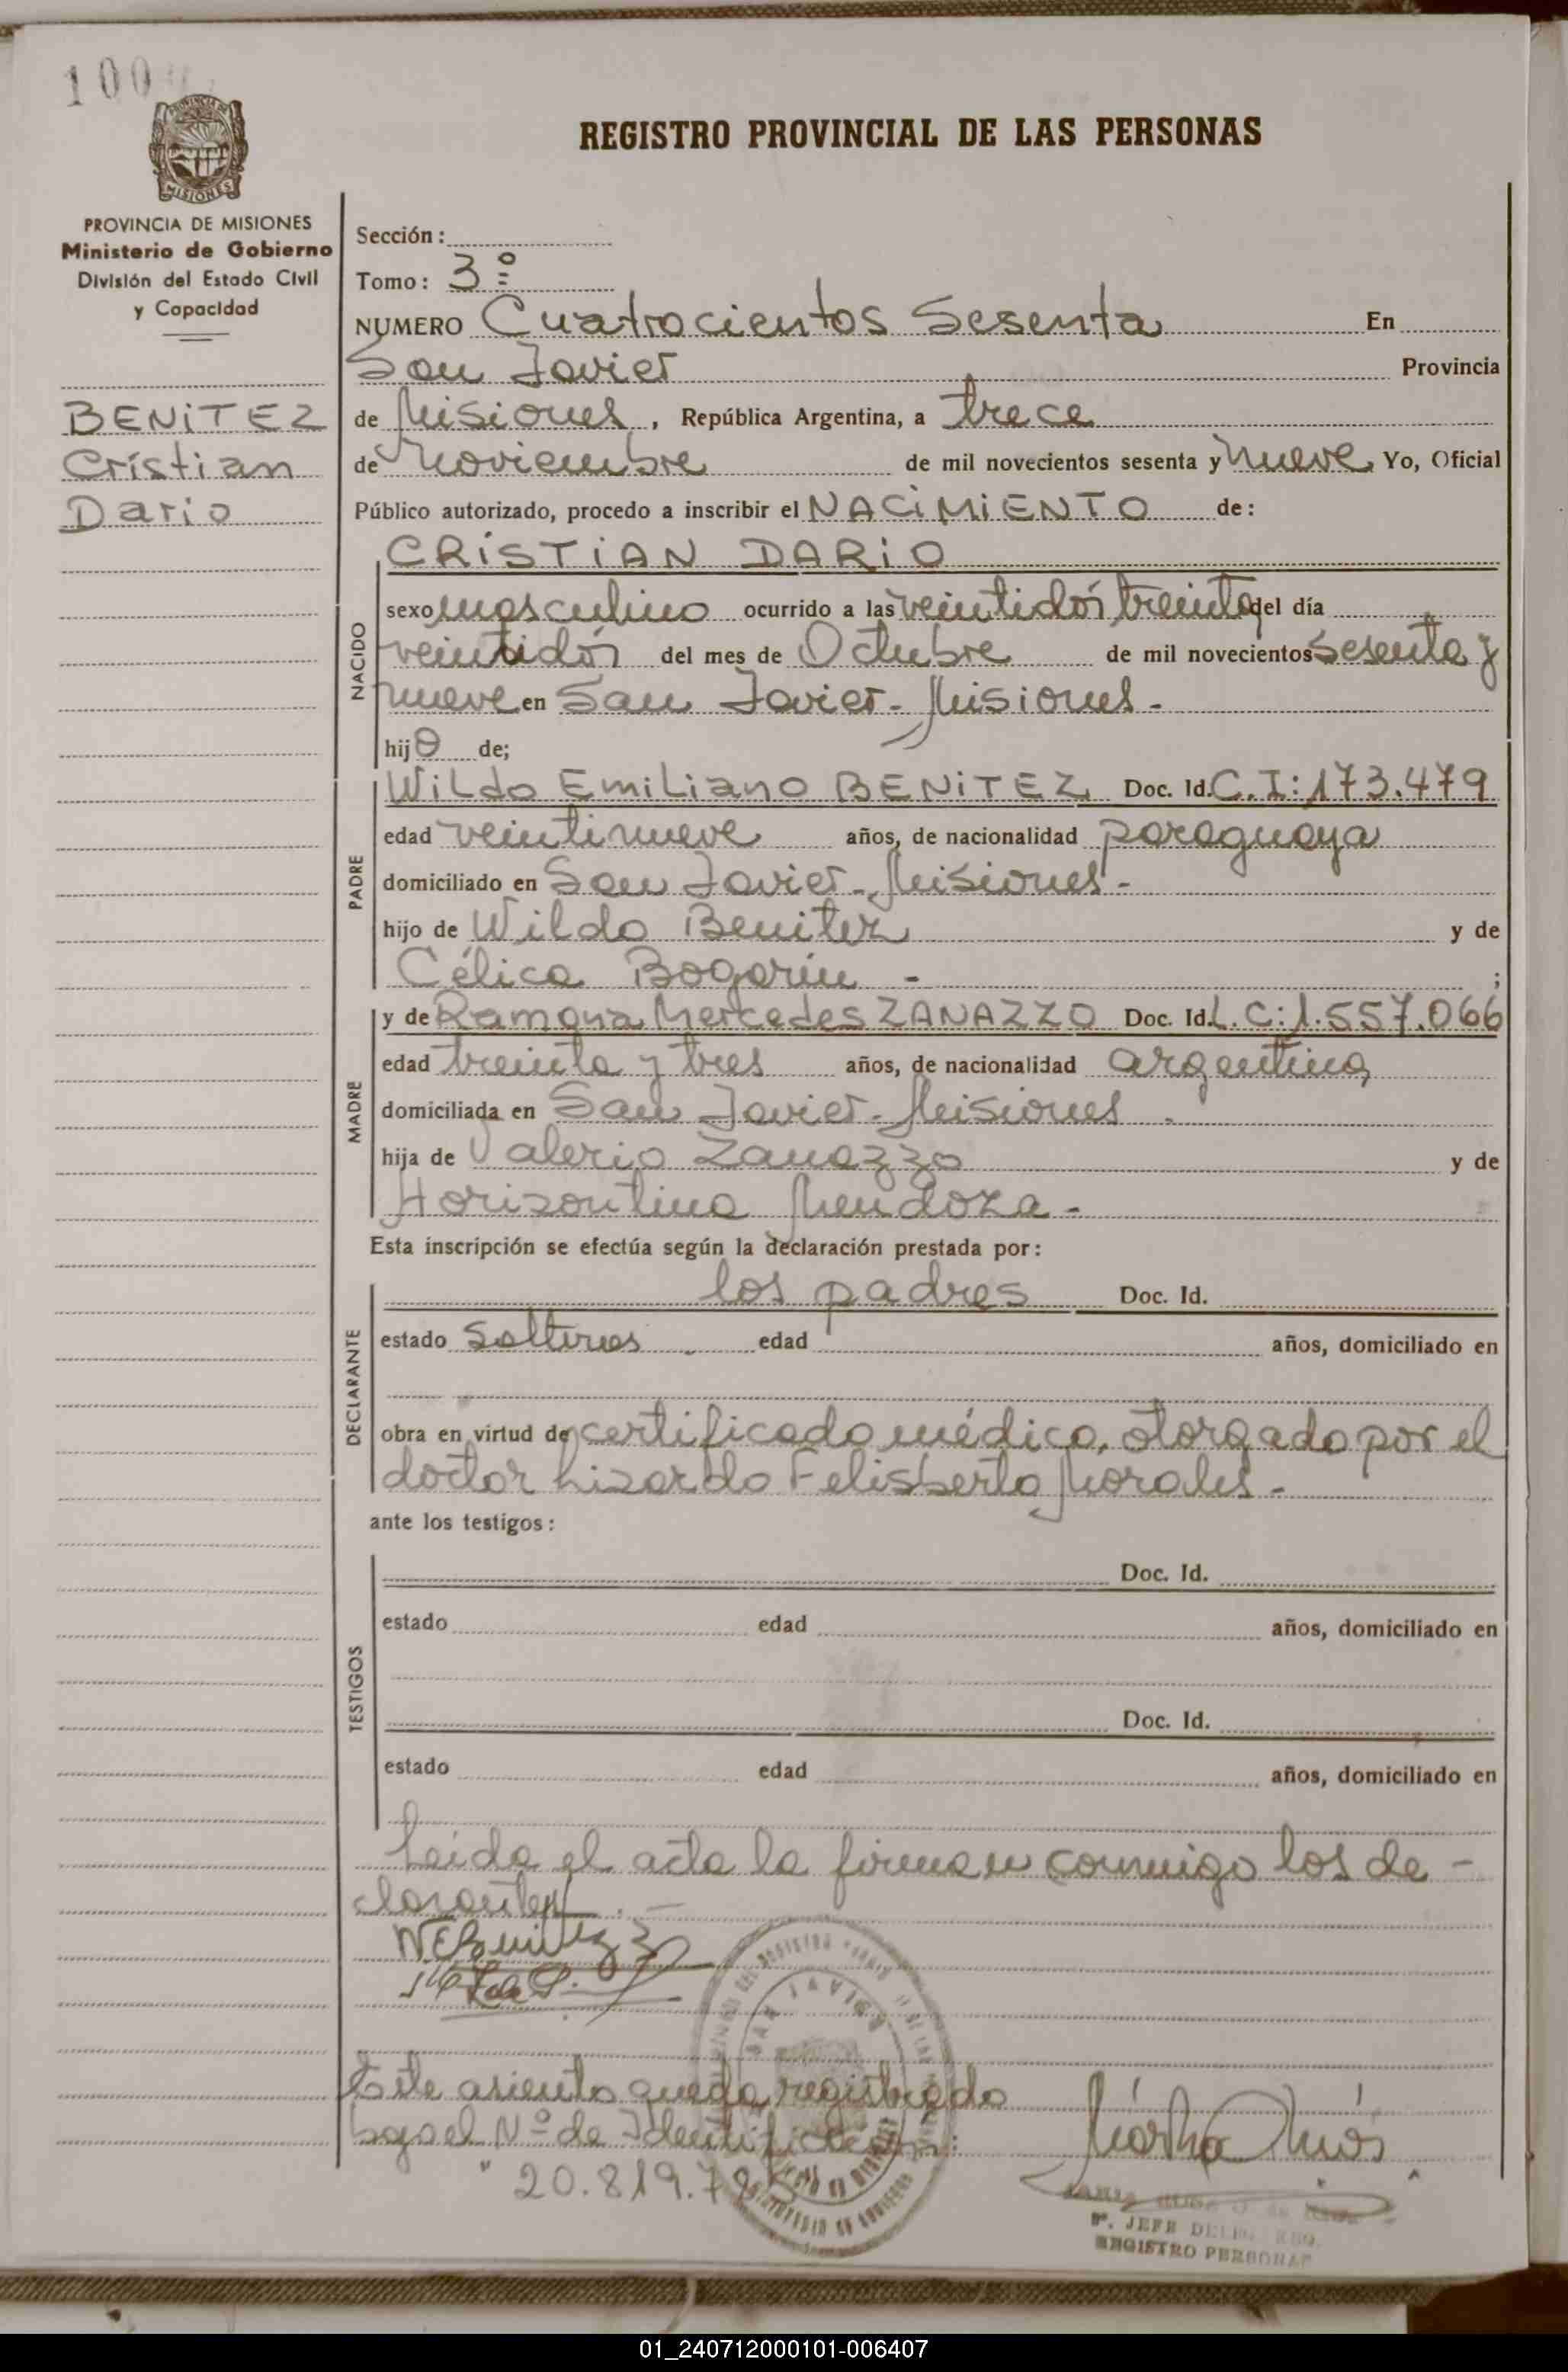 100
REGISTRO PROVINCIAL DE LAS PERSONAS
PROVINCIA DE MISIONES
Ministerio de Gobierno
División del Estado Civil
y Capacidad
BENITEZ
Cristian
Dario
Sección:
Tomo: 3º
NUMERO Cuatrocientos Sesenta En
San Javier Provincia
de Misiones, República Argentina, a trece
de Noviembre de mil novecientos sesenta y nueve, Yo, Oficial
Público autorizado, procedo a inscribir el NACIMIENTO de:
CRISTIAN DARIO
NACIDO
sexo masculino ocurrido a las veintidós treinta del día
veintidós del mes de Octubre de mil novecientos sesenta y
nueve en San Javier - Misiones -
hijo de;
PADRE
Wildo Emiliano BENITEZ Doc. Id. C.I: 173.479
edad veintinueve años, de nacionalidad paraguaya
domiciliado en San Javier - Misiones -
hijo de Wildo Benitez y de
Célica Bogarín - ;
MADRE
y de Ramona Mercedes ZANAZZO Doc. Id. L.C: 1.557.066
edad treinta y tres años, de nacionalidad argentina
domiciliada en San Javier - Misiones -
hija de Valerio Zanazzo y de
Horisontina Mendoza -
Esta inscripción se efectúa según la declaración prestada por:
DECLARANTE
los padres Doc. Id.
estado solteros edad años, domiciliado en
obra en virtud de certificado médico, otorgado por el
doctor Lizardo Felisberto Morales -
ante los testigos:
TESTIGOS
Doc. Id.
estado edad años, domiciliado en
Doc. Id.
estado edad años, domiciliado en
Leida el acta la firman conmigo los de -
clarantes . -
WEBenitez
SAN JAVIER
Este asiento queda registrado
bajo el Nº de Identificación:
20.819.7
Jefe DELEG.
REGISTRO PERSONAS
01_240712000101-006407